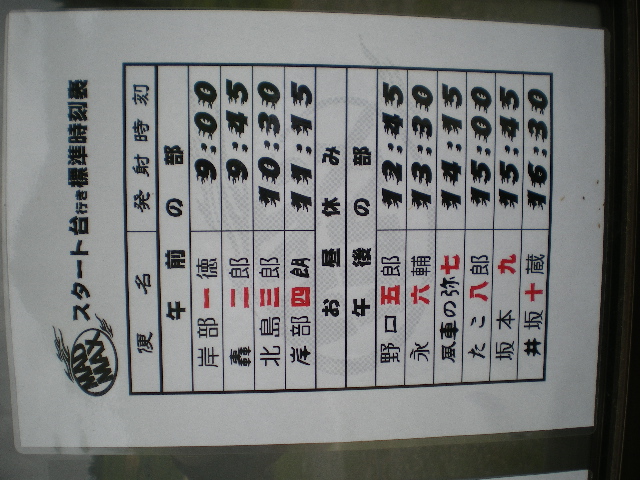 MAD MAX スタート台行き標準時刻表
便名 発射時刻
午前の部
岸部一徳 9:00
轟二郎 9:45
北島三郎 10:30
岸部四朗 11:15
お昼休み
午後の部
野口五郎 12:45
永六輔 13:30
風車の弥七 14:15
たこ八郎 15:00
坂本九 15:45
井坂十蔵 16:30